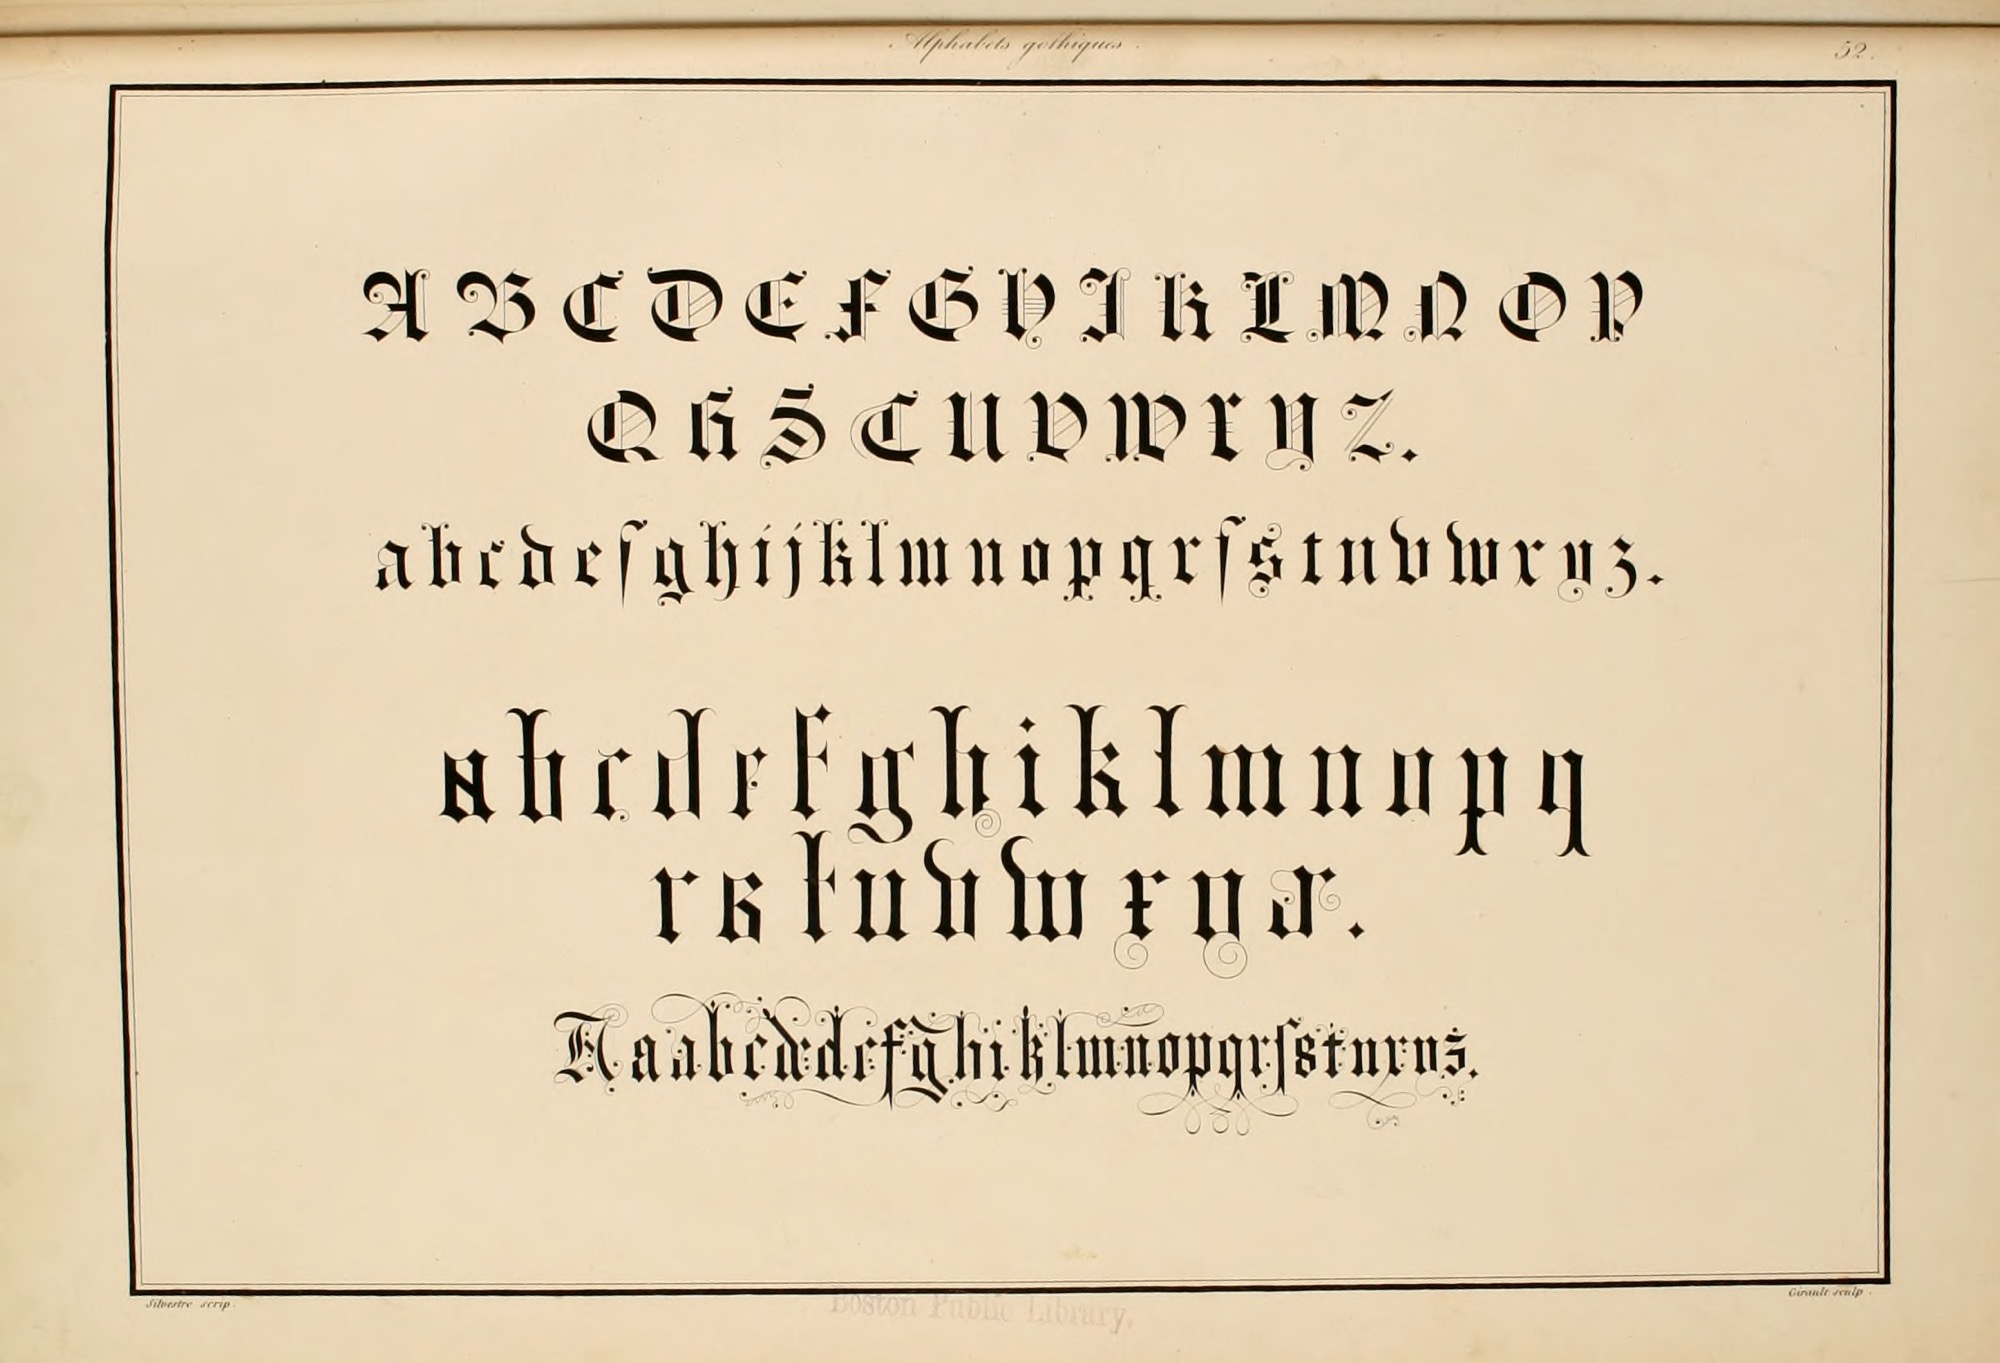 Alphabets gothiques.
52.
A B C D E F G H I K L M N O P
Q R S T U V W X Y Z.
a b c d e f g h i j k l m n o p q r ſ s t u v w x y z.
a b c d e f g h i k l m n o p q
r s t u v w x y z.
A a a b c d d e f g h i k l m n o p q r ſ s t u x y z.
Silvestre scrip.
Girault sculp.
Boston Public Library.